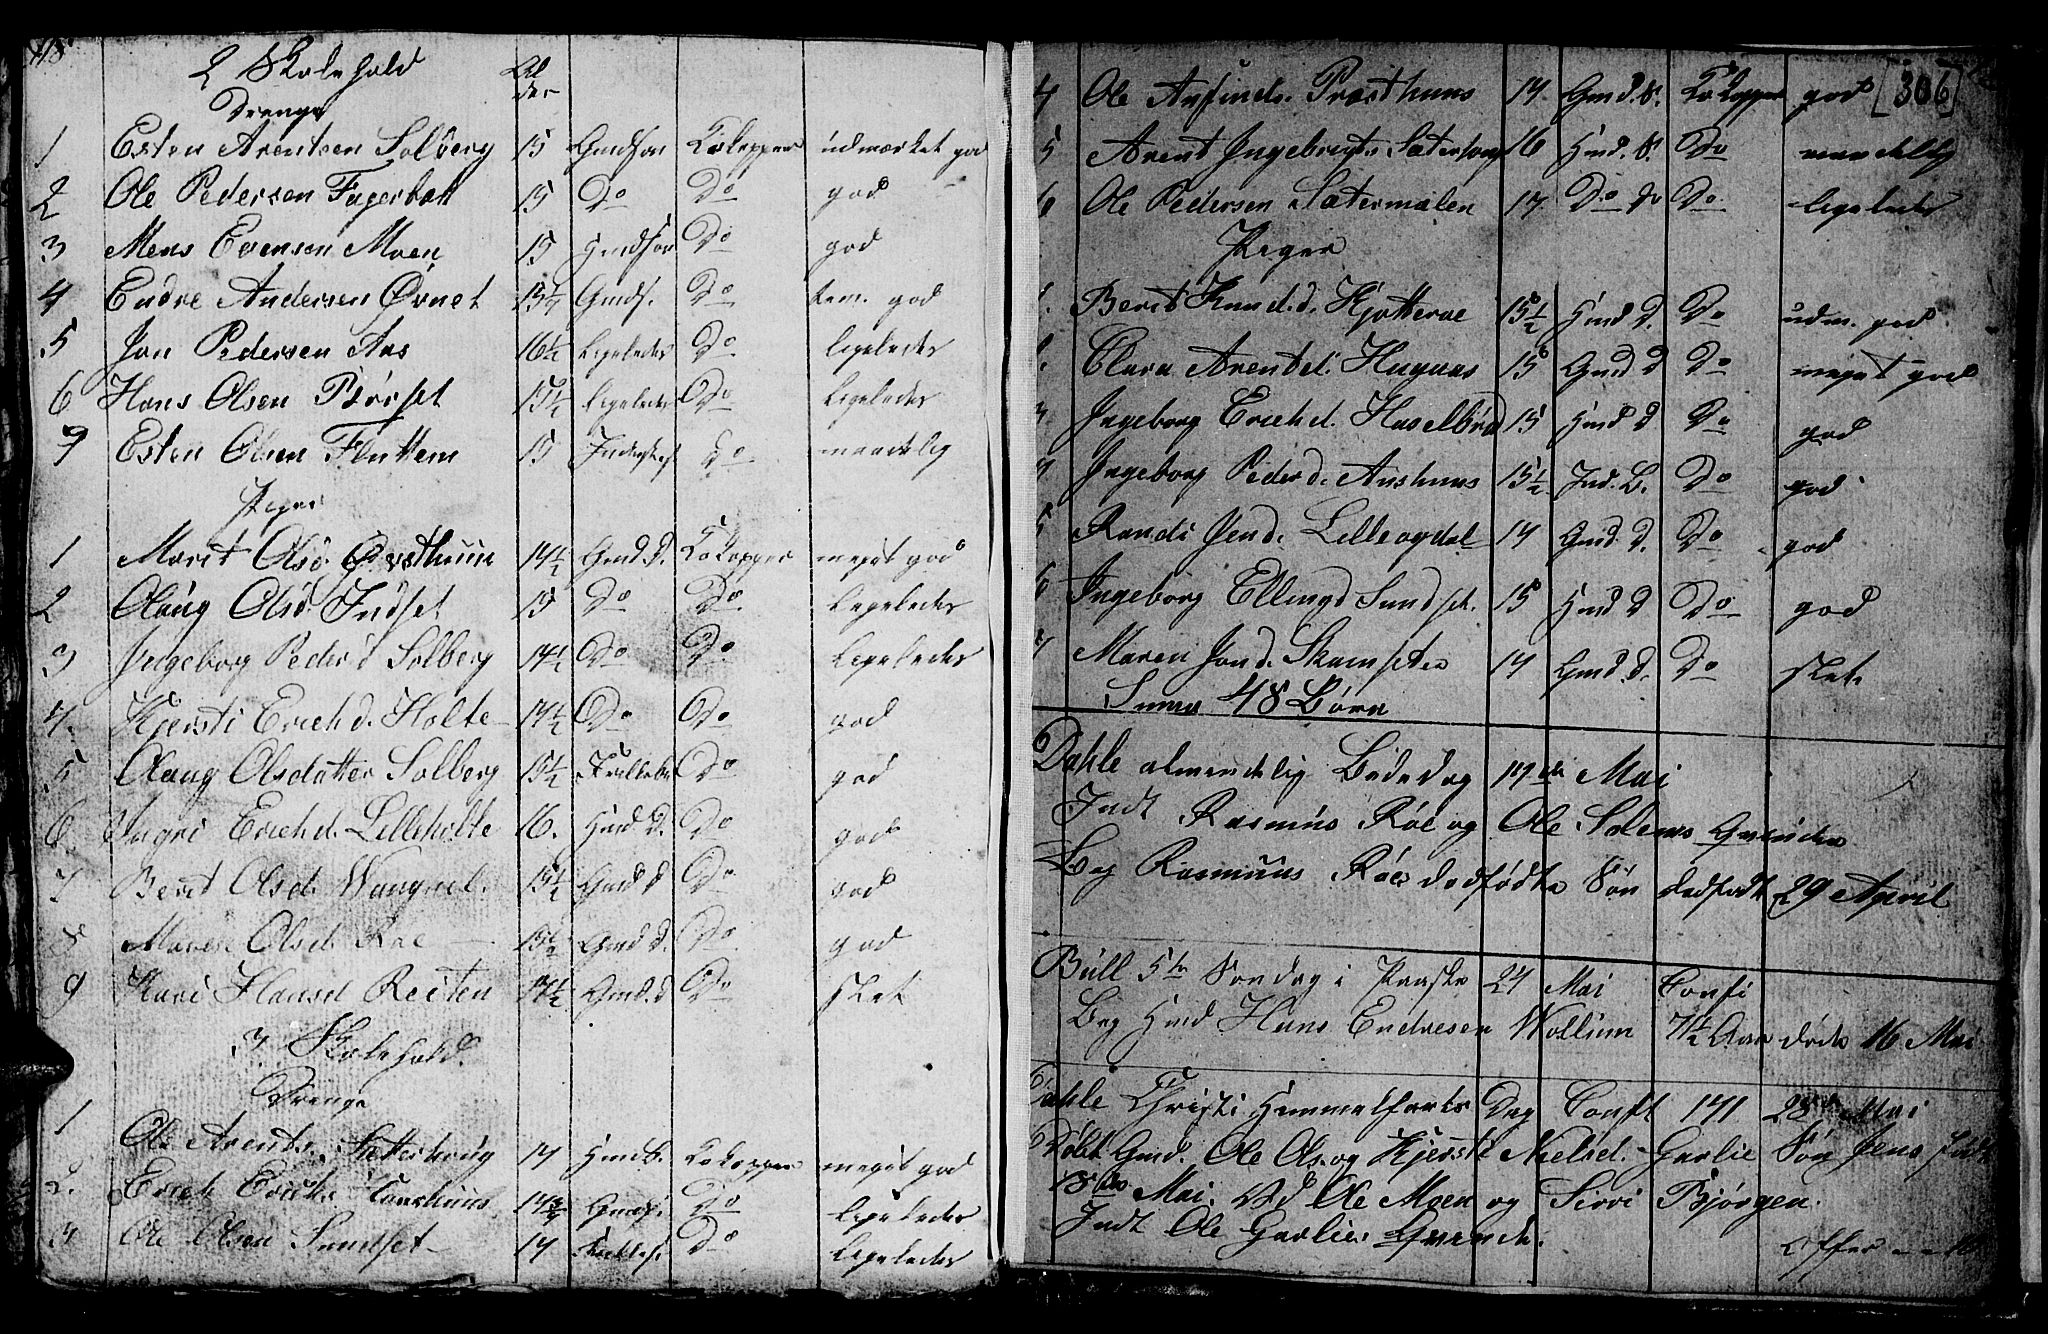 2 Skolehold
Al
der
Drenge
1 Esten Arentsen Solberg 15 Gmdsøn Kokopper udmærket god
2 Ole Pedersen Fagerbak 15 Do Do god
3 Mens Evensen Moen 15 Hmdsøn Do god
4 Endre Andersen Ørnet Gmds. Do tem. god
5 Jon Pedersen Aas 16½ Ligeledes Do ligeledes
6 Hans Olsen Børset 15½ Ligeledes Do Ligeledes
7 Esten Olsen Fluttem 15 Do maadelig
Piger
1 Marit Olsd. 14½ Gmd. D. Kokopper meget god
2 Olaug Olsd. Indset 15 Do Do Ligeledes
3 Ingeborg Peder d Solberg 14½ Do Do Ligeledes
4. Kjersti Erich d. Holte 14½ Do Do god
5 Olaug Olsdatter Solberg 15½ Do god
6 Ingri Erich d. Lilleholte 16. Hmd. D. Do god
7 Berit Olsd. Wangvel. 15½ Gmd d Do god
8 Maren Olsd. Røe 15½ Gmd D. Do god
9 Kari Hansd Reiten 14½ Gmd. d Do slet
3 Skolehold.
Drenge
1 Ole Arents. Setterhoug 14 Kokopper meget god
2. Erich Erichs. 14¾ Gmds. Do ligeledes
3 Ole Olsen Sundset 14 Do ligeledes
[306]
4 Ole Arfinds. Præsthuus 14. Gmd. S. Kokopper god
5 Arent Ingebrigts. 16 Hmd. S. Do maadelig
6 Ole Pedersen Sætermælen 17 Do Do Do ligeledes
Piger
1. Berit Knud. d. 15½ Hmd d. Do udm. god
2. Clara Arentd. Hagaas 15 Gmd d Do meget god
3 Ingeborg Erich d. 15 Hmd d Do god
4 Ingeborg Peder d. Aashuus 15½ Do god
5 Randi Jon d. 14 Gmd. d. Do god
6 Ingeborg Elling d Sundset. 15 Hmd d Do god
7 Maren Jon d. Skamsten 14 Gmd d. Do slet
Summa 48 Børn
Dahle almindelig Bededag Mai
Indt Rasmus Røe og Ole Solems Qvinder
Beg Rasmuus Røes dødfødte Søn dødfødt 29 April
Bull 5te Søndag i Paaske 24 Mai Confi
Beg Hmd Hans Endresen Wollum 71½ Aar døde 16 Mai
Dahle Christi Himmelfarts Dag Conft 171 28 Mai
Døbt Gmd. Ole Ols. og Kjersti Nielsd. Garlie Søn Jens født
18de Mai. Ved Ole Moen og Siri Bjørgen.
Indt Ole Garlies Qvinde.
Offer